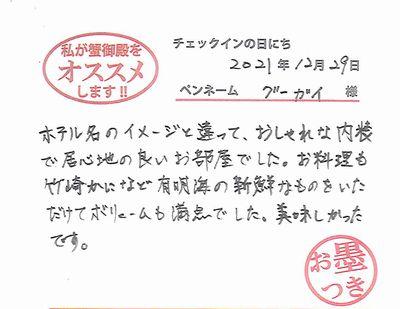 私が蟹御殿を
オススメ
します!!
チェックインの日にち
2021年12月29日
ペンネーム グーガイ 様
ホテル名のイメージと違って、おしゃれな内装
で居心地の良いお部屋でした。お料理も
竹崎かになど有明海の新鮮なものをいた
だけてボリュームも満点でした。美味しかった
です。
お墨
つき